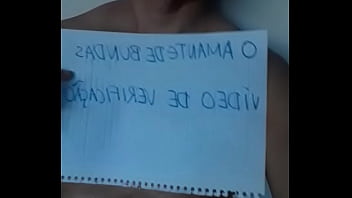 O AMANTE DE BUNDAS
VÍDEO DE VERIFICAÇÃO